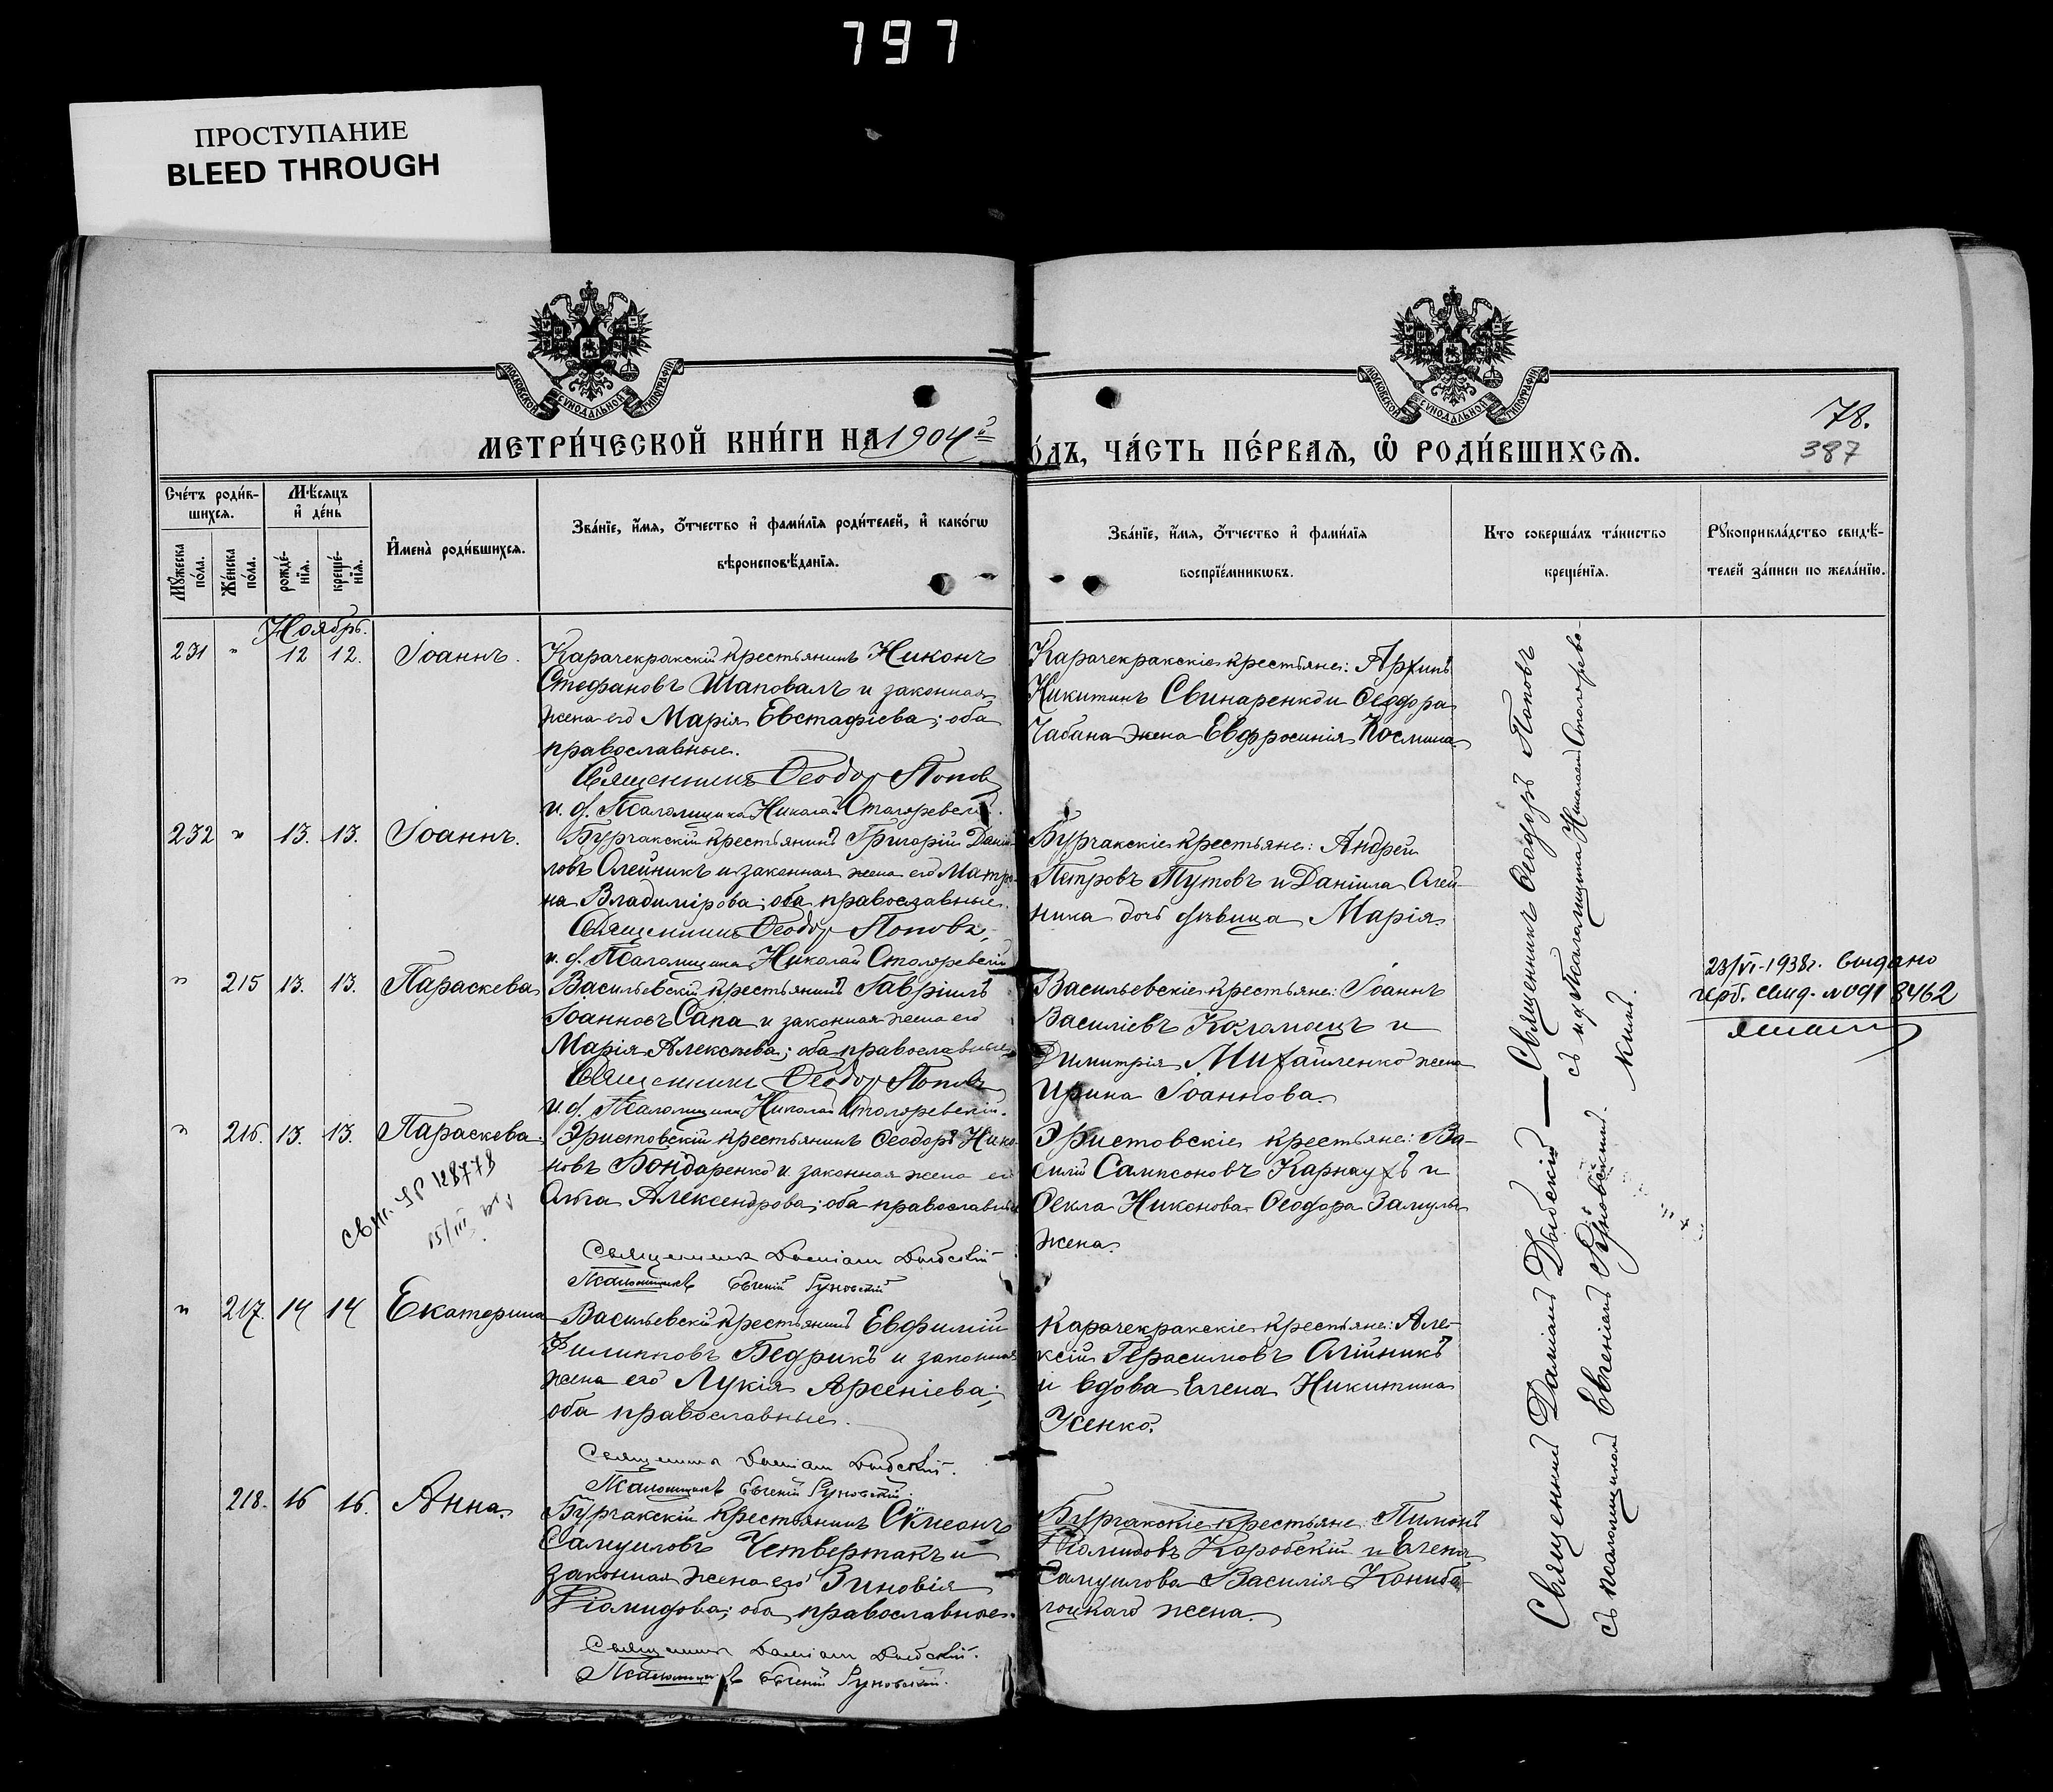 797
ПРОСТУПАНИЕ
BLEED THROUGH
МОСКОВСКОЙ СѴНОДАЛЬНОЙ ТИПОГРАФІИ
МОСКОВСКОЙ СѴНОДАЛЬНОЙ ТИПОГРАФІИ
78.
387
МЕТРИ́ЧЕСКОЙ КНИ́ГИ НА 1904й
О́ДЪ, ЧА́СТЬ ПЕ́РВАЯ, Ѡ҆ РОДИ́ВШИХСЯ.
Сче́тъ роди́в-
шихся.
Мꙋжеска по́ла.
Же́нска по́ла.
Мѣ́сяцъ
и҆ де́нь
рожде́-
нїя.
креще́-
нїя.
И҆мена̀ роди́вшихся.
Зва́нїе, и҆́мя, ѻ҆́тчество и҆ фами́лїя роди́телей, и҆ како́гѡ
вѣроисповѣ́данїя.
Зва́нїе, и҆́мя, ѻ҆́тчество и҆ фами́лїя
воспрїе́мникѡвъ.
Кто соверша́лъ та́инство
креще́нїя.
Рꙋкоприкла́дство свидѣ́-
телей за́писи по жела́нїю.
Ноябрь.
231 " 12 12. Іоаннъ.
Карачекракскій крестьянинъ Никонъ
Стефановъ Шаповалъ и законная
жена его Марія Евстафіева; оба
православные.
Священникъ Ѳеодоръ Попов
и. д. Псаломщика Николай Столяревскій.
Карачекракскіе крестьяне:
Никитинъ Свинаренко и Ѳеодора
Чабана жена Евфросинія Космина
232 " 13. 13. Іоаннъ.
Бурчакскій крестьянинъ Григорій Даніи-
ловъ Олейникъ и законная жена его Матро-
на Владимірова; оба православные.
Священникъ Ѳеодоръ Поповъ,
и. д. Псаломщика Николай Столяревскій
Бурчакскіе крестьяне: Андрей
Петровъ Тутовъ и Даніила Олей-
ника дочь дѣвица Марія.
" 215 13. 13. Параскева
Васильевскій крестьянинъ Гавріилъ
Іоанновъ Сапа и законная жена его
Марія Алексѣева; оба православные
Священникъ Ѳеодоръ Поповъ
и. д. Псаломщика Николай Столяревскій.
Васильевскіе крестьяне: Іоаннъ
Василіевъ и
Димитрія Михайленко жена
Ирина Іоаннова.
23/VI-1938г. выдано
герб. свид. № 8462
" 216. 13. 13. Параскева.
Эристовскій крестьянинъ Ѳеодоръ Нико-
новъ Бондаренко и законная жена его
Ольга Александрова; оба православные
Священникъ Даміанъ Дыбскій
Псаломщикъ Евгеній Руновскій
Эристовскіе крестьяне: Ва-
силій Сампсоновъ Карнаухъ и
Ѳекла Никонова Ѳеодора
жена.
128778
" 217. 14 14 Екатерина
Васильевскій крестьянинъ Евфимій
Филипповъ Бедрикъ и законная
жена его Лукія Арсеніева;
оба православные.
Священникъ Даміанъ Дыбскій.
Псаломщикъ Евгеній Руновскій.
Карачекракскіе крестьяне: Але-
ксій Герасимовъ Олійникъ
и вдова Елена Никитина
Усенко.
218. 16 16. Анна.
Бурчакскій крестьянинъ
Самуиловъ Четвертакъ и
законная жена его Зиновія
Діомидова; оба православные.
Священникъ Даміанъ Дыбскій.
Псаломщикъ Евгеній Руновскій.
Бурчакскіе крестьяне:
Діомидовъ Коробскій и Елена
Самуилова Василія
жена.
Священникъ Даміанъ Дыбскій — Священникъ Ѳеодоръ Поповъ
съ псаломщикомъ Евгеніемъ Руновскимъ.
съ и. д. Псаломщика Николаемъ Столярев-
скимъ.